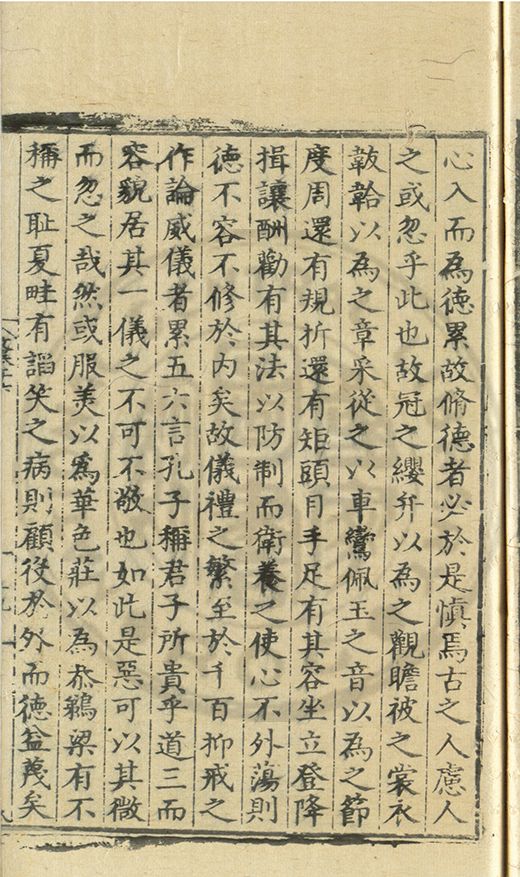 心入而為徳累故脩德者必於是慎焉古之人慮人
之或忽乎此也故冠之纓弁以為之觀瞻被之裳衣
韍韐以為之章采從之以車鸞佩玉之音以為之節
度周還有規折還有矩頭目手足有其容坐立登降
揖讓酬勸有其法以防制而衛養之使心不外蕩則
徳不容不修於内矣故儀禮之繁至於千百抑戒之
作論威儀者累五六言孔子稱君子所貴乎道三而
容貌居其一儀之不可不敬也如此是惡可以其微
而忽之哉然或服美以為華色莊以為恭鵜梁有不
稱之耻夏畦有謟笑之病則顧役於外而徳益蔑矣